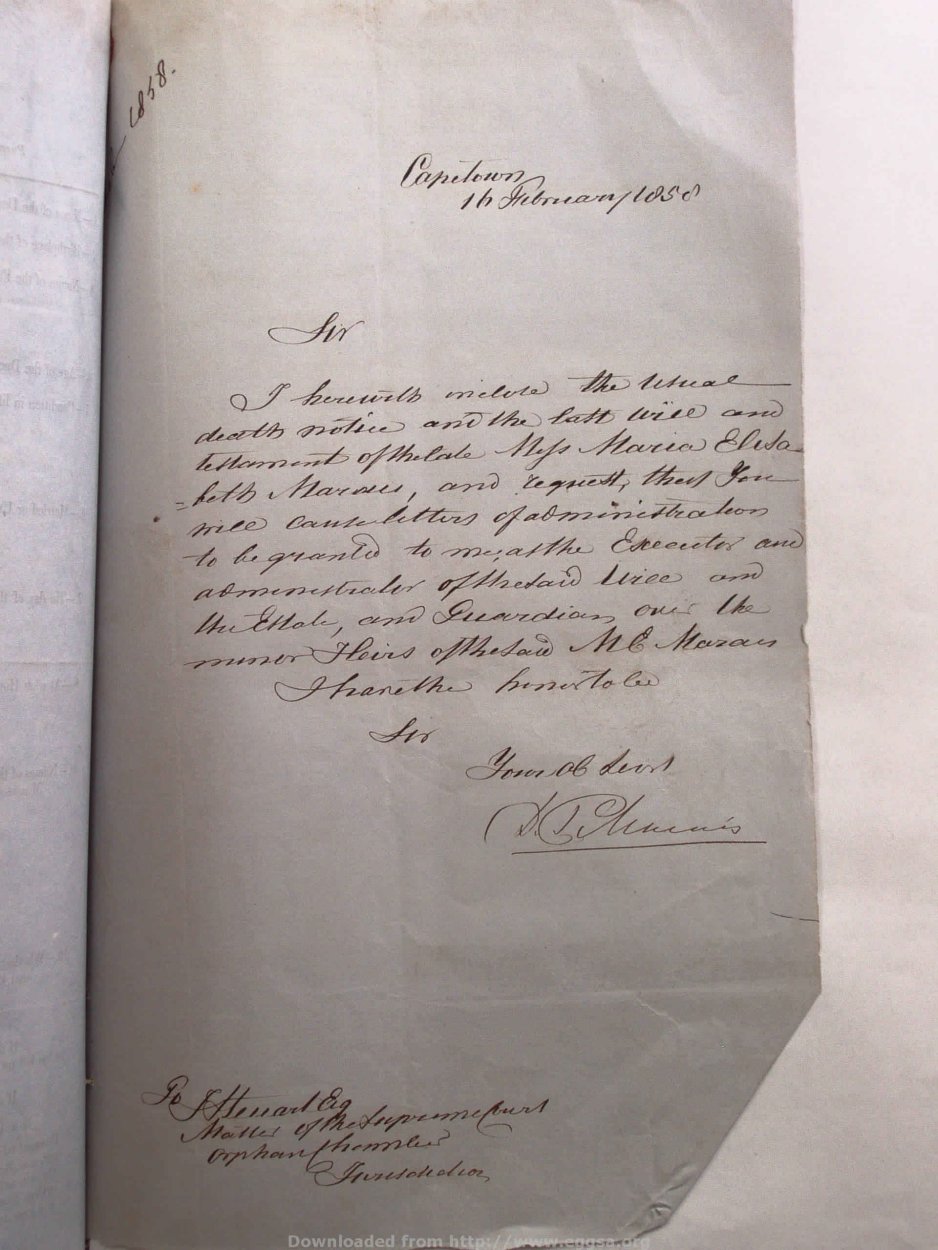 1858.
Capetown
16 February 1858
Sir
I herewith inclose the usual
death notice and the last will and
testament of the late Miss Maria Elisa-
=beth Marais, and request, that You
will cause letters of administration
to be granted to me, as the Executor and
administrator of the said Will and
the Estate, and Guardian over the
minor Heirs of the said M E Marais
I have the honor to be
Sir
Your Ob Servt
To J Steuart Esq
Master of the Supreme Court
Orphan Chamber
Jurisdiction
Downloaded from http://www.eggsa.org